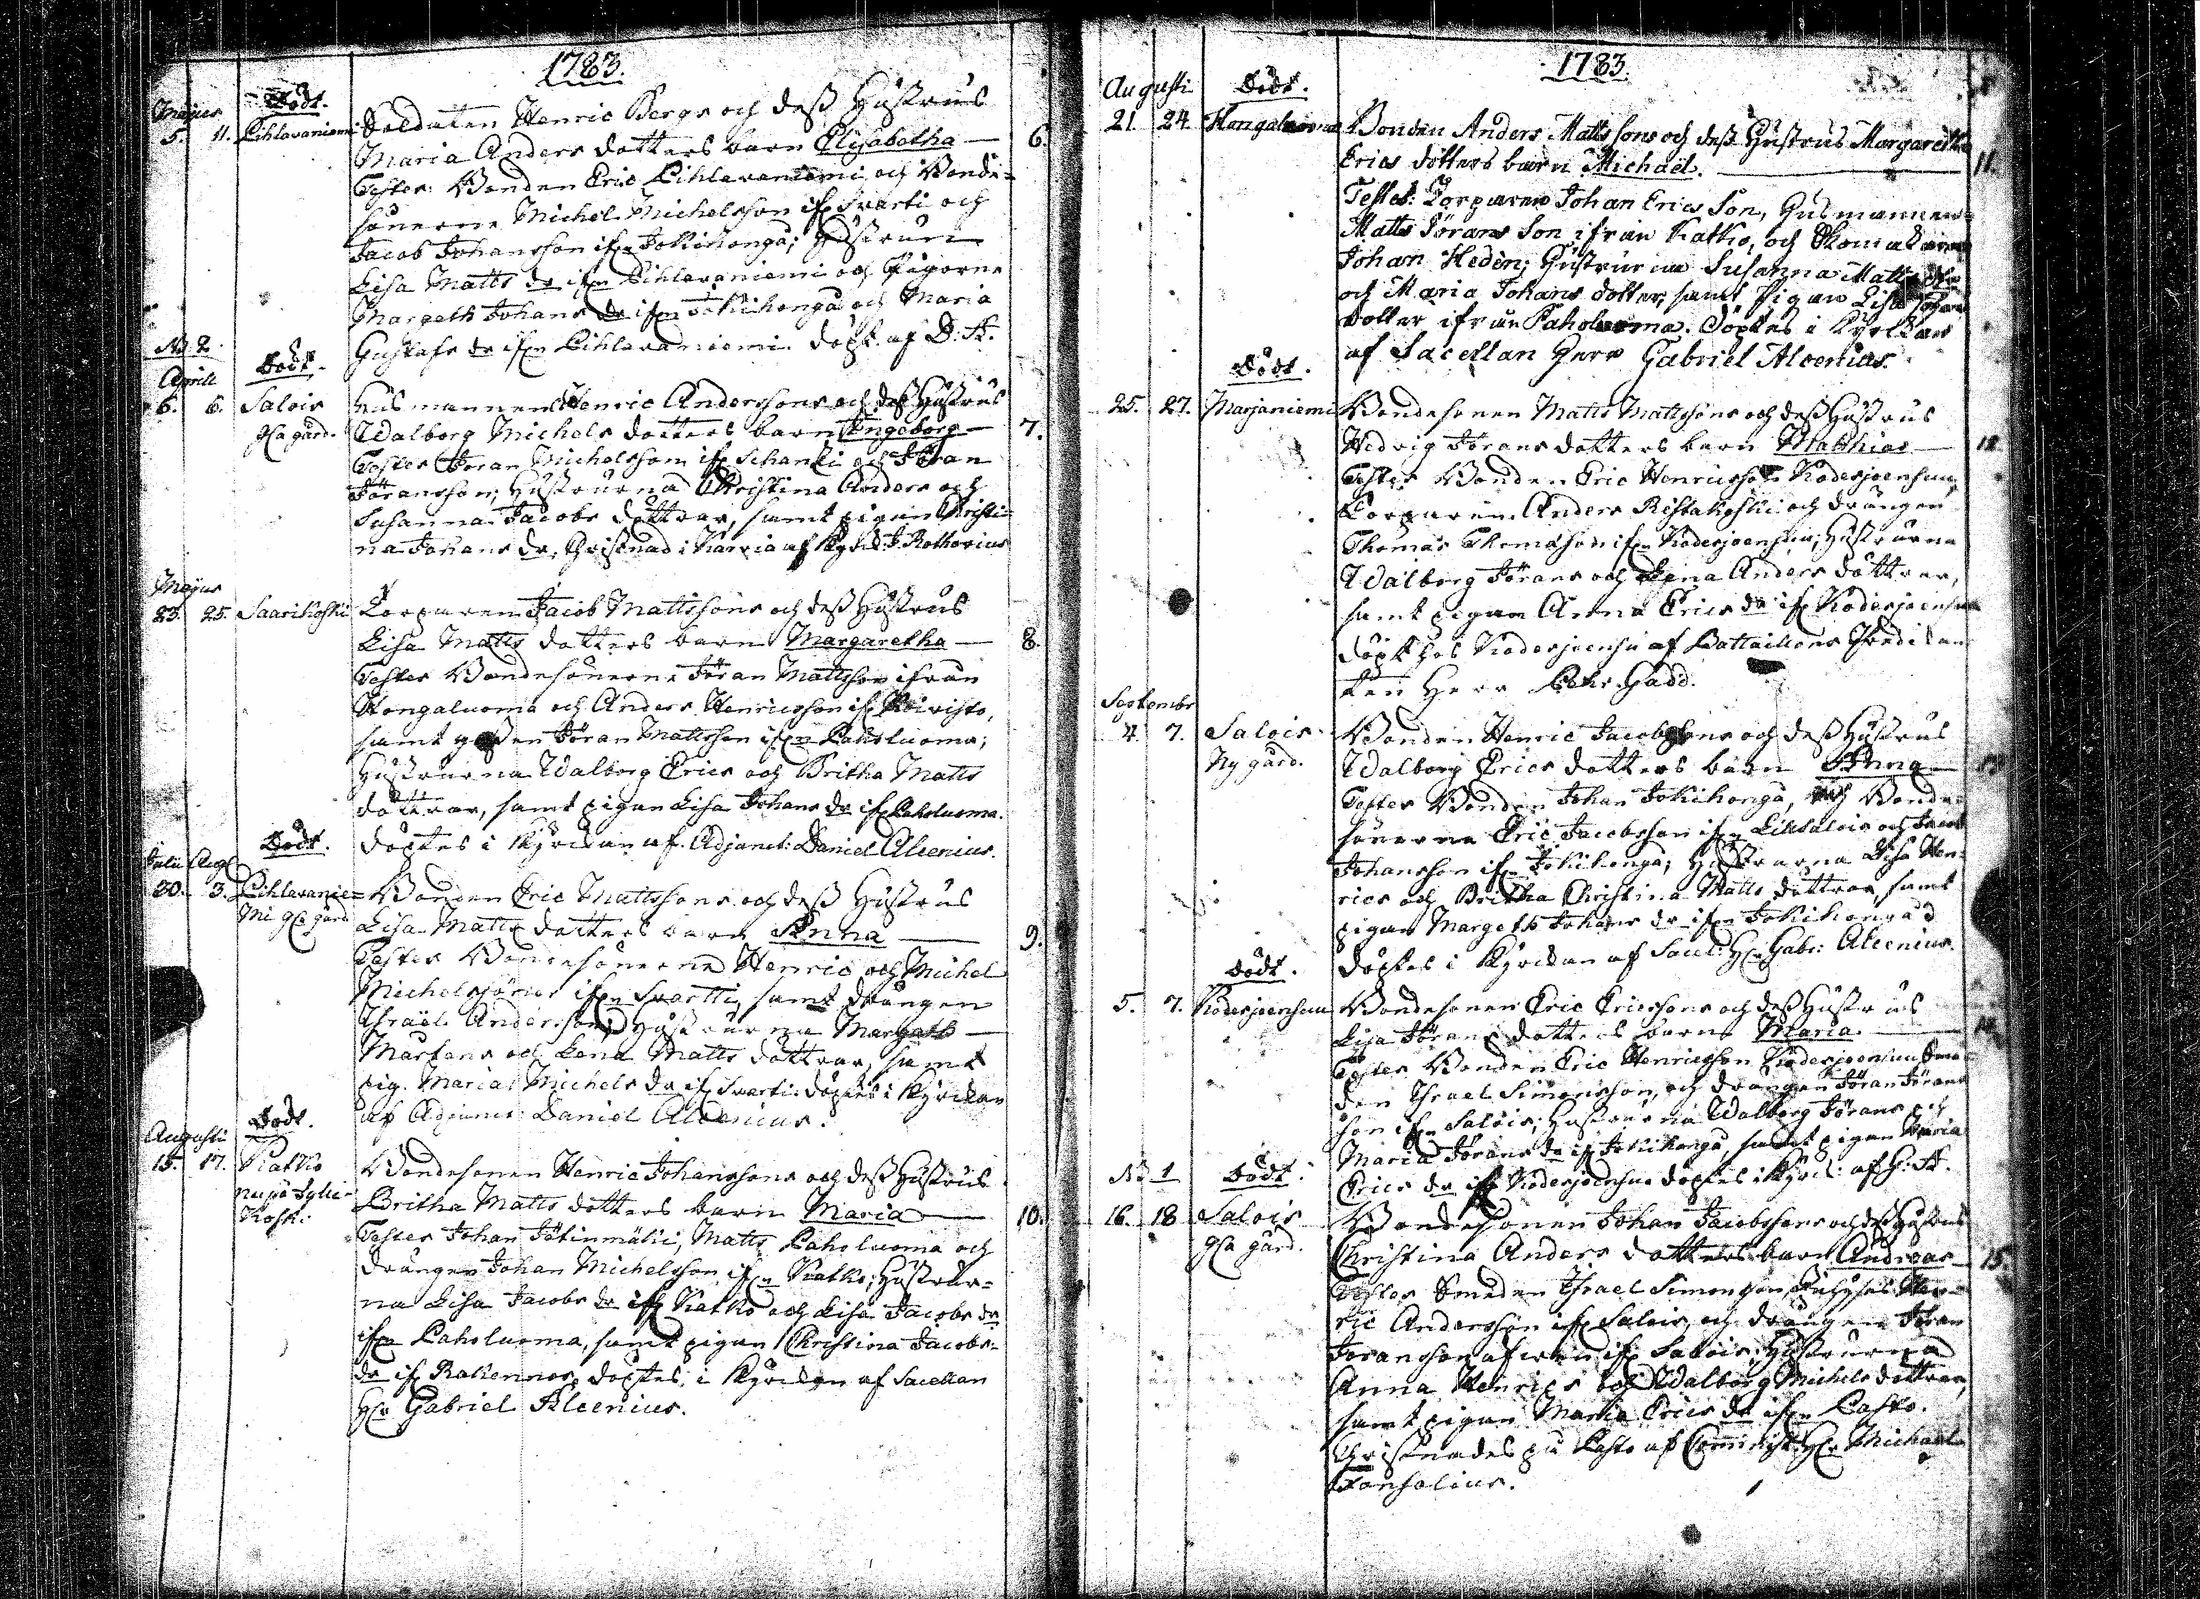 1783.
Majus Dödt.
5. 11. Pihlavaniemi Soldaten Henric Bergs och dess Hustrus
Maria Anders dotters barn Elisabetha — 6.
Testes: Bonden Eric Pihlavaniemi och Bonde=
sönerne Michel Michelsson ifr Svarti och
Jacob Johansson ifrn Jokikonga; Hustrun
Lisa Matts dr ifrn Pihlavaniemi och Pigorne
Margeth Johans dr ifrn Jokikonga och Maria
Gustafs dr ifrn Pihlavaniemi. döpt af D. A.
No. 2.
Aprill Dödt.
6. 6. Salois Husmannen Henric Anderssons och dess Hustrus
gla gård. Walborg Michels dotters barn Ingeborg — 7.
Testes Jöran Michelsson ifr Schanki och Jöran
Jöransson; Hustrurna Christina Anders och
Susanna Jacobs döttrar, samt pigan Christi=
na Johans dr, Christnad i Karvia af J. Rothovius
Majus
23. 25. Saarikoski Torparen Jacob Mattssons och dess Hustrus
Lisa Matts dotters barn Margaretha — 8.
Testes Bondesönerne Jöran Mattsson ifrån
Kongaluoma och Anders Henricsson ifr Koivisto,
samt gossen Jöran Mattsson ifrn Paholuoma;
Hustrurna Walborg Erics och Britha Matts
döttrar, samt pigan Lisa Johans dr ifr Paholuoma.
döptes i Kyrckan af Adjunct: Daniel Alcenius.
Dödt.
Julii Aug
30. 3. Pihlavanie= Bonden Eric Mattssons och dess Hustrus
mi gla gård Lisa Matts dotters barn Anna — 9.
Testes Bondesönerne Henric och Michel
Michelssöner ifrn Svartti, samt drängen
Israel Andersson; Hustrurna Margeth
Martens och Lena Matts döttrar, samt
pig. Maria Michels dr ifr Svarti. döptes i Kyrckan
af Adjunct: Daniel Alcenius.
Dödt.
Augusti
15. 17. Katko Bondesonen Henric Johanssons och dess Hustrus
Koski Britha Matts dotters barn Maria — 10.
Testes Johan Jätinmäki, Matts Paholuoma och
drängen Johan Michelsson ifrn Katko; Hustrur=
na Lisa Jacobs dr ifr Katko och Lisa Jacobs dr
ifrn Paholuoma, samt pigan Christina Jacobs=
dr ifr Rakennos, döptes i Kyrckan af Sacellan
Hr Gabriel Alcenius.
1783.
Augusti Dödt.
21. 24. Kangaluoma Bonden Anders Mattssons och dess Hustrus Margaretha
Erics dotters barn Michaël. — 11.
Testes: Torparen Johan Erics Son, Husmannen
Matts Jörans Son ifrån Katko, och Skomakaren
Johan Hedén; Hustrurna Susanna Matts dr
och Maria Johans dotter, samt Pigan Lisa Johans
dotter ifrån Paholuoma. Döptes i Kyrckan
af Sacellan Herr Gabriel Alcenius.
Dödt.
25. 27. Marjaniemi Bondesonen Matts Mattssons och dess Hustrus
Hedvig Jörans dotters barn Matthias — 12
Testes Bonden Eric Henricsson Kodesjoensuu,
Torparen Anders Ristakoski och drängen
Thomas Thomasson ifrn Kodesjoensuu; Hustrurna
Walborg Jörans och Lena Anders döttrar,
samt pigan Anna Erics dr ifr Kodesjoensuu
döpt hos Kodesjoensu af Battaillons Predikan
ten Herr Petr. Gadd.
Septembr
4. 7. Salois Bonden Henric Jacobssons och dess Hustrus
Ny gård. Walborg Erics dotters barn Anna — 13
Testes Bonden Johan Jokikonga, och Bonde
sönerna Eric Jacobsson ifrn Lillsalois och Jacob
Johansson ifrn Jokikonga; Hustrurna Lisa Hen
rics och Britha Christina Matts döttrar, samt
pigan Margeth Johans dr ifrn Jokikonga
döptes i Kyrckan af Sacel: Hr Gabr: Alcenius.
Dödt.
5. 7. Kodesjoensuu Bondesonen Eric Ericssons och dess Hustrus
Lisa Jörans dotters barn Maria. — 14.
Testes Bonden Eric Henricsson Kodesjoensuu Sme
den Israel Simonsson, och drängen Jöran Jörans
son ifrn Salois; Hustrurna Walborg Jörans och
Maria Jörans dr ifr Jokikonga, samt pigan Maria
Erics dr ifr Kodesjoensuu döptes i Kyrck: af G: A.
No 1 Dödt.
16. 18 Salois Bondesonen Johan Jacobssons och dess Hustrus
gla gård. Christina Anders dotters barn Andreas — 15.
Testes Smeden Israel Simonsson, Hen=
ric Andersson ifr Salois, och drängen Jöran
Joransson ifr Salois; Hustrurna
Anna Henrics och Walborg Michels döttrar,
samt pigan Maria Erics dr ifrn Pasto.
Christnades på Pasto af Comminist: Hr Michael
Forselius.